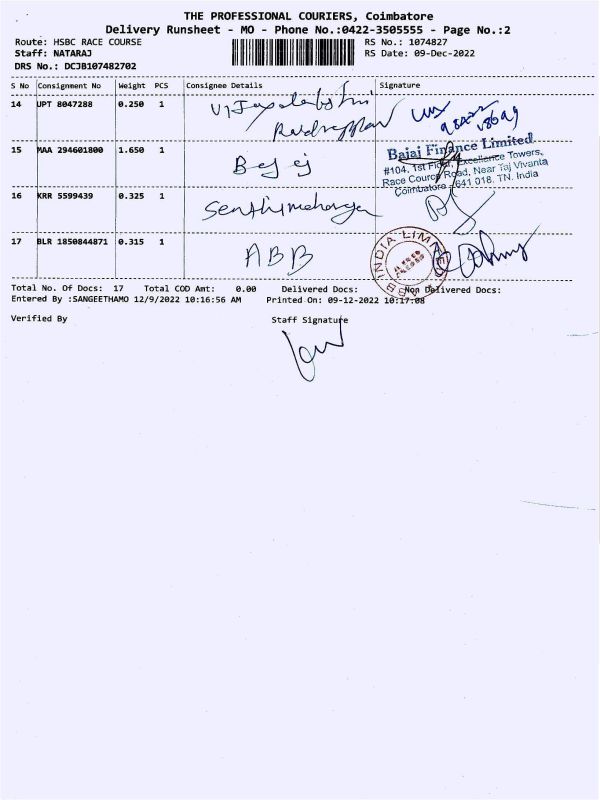 THE PROFESSIONAL COURIERS, Coimbatore
Delivery Runsheet - MO - Phone No.:0422-3505555 - Page No.:2
Route: HSBC RACE COURSE RS No.: 1074827
Staff: NATARAJ RS Date: 09-Dec-2022
DRS No.: DCJB107482702
S No Consignment No Weight PCS Consignee Details Signature
14 UPT 8047288 0.250 1
15 MAA 294601800 1.650 1
Bajaj Finance Limited
#104, 1st Floor, Excellence Towers,
Race Course Road, Near Taj Vivanta
Coimbatore - 641 018. TN. India
16 KRR 5599439 0.325 1
17 BLR 1850844871 0.315 1 ABB
INDIA LIM
Total No. Of Docs: 17 Total COD Amt: 0.00 Delivered Docs: Non Delivered Docs:
Entered By :SANGEETHAMO 12/9/2022 10:16:56 AM Printed On: 09-12-2022 10:17:08
Verified By Staff Signature